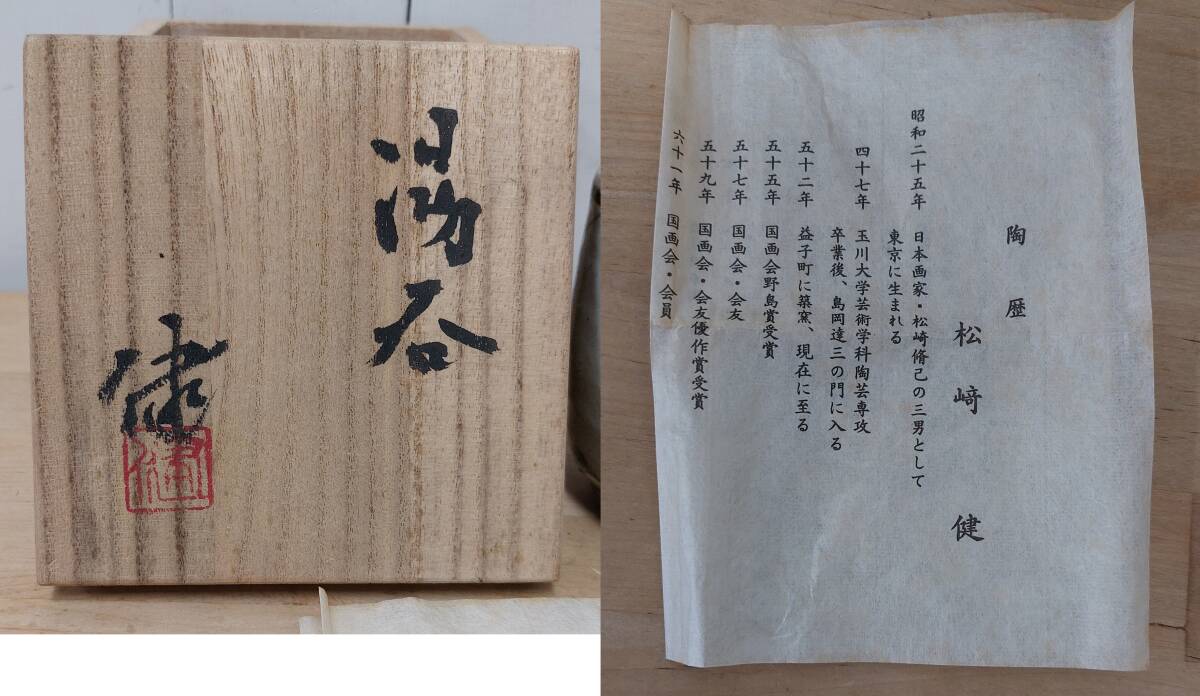 湯呑
健
健
陶歴
松﨑健
昭和二十五年 日本画家・松崎脩己の三男として
東京に生まれる
四十七年 玉川大学芸術学科陶芸専攻
卒業後、島岡達三の門に入る
五十二年 益子町に築窯、現在に至る
五十五年 国画会野島賞受賞
五十七年 国画会・会友
五十九年 国画会・会友優作賞受賞
六十一年 国画会・会員